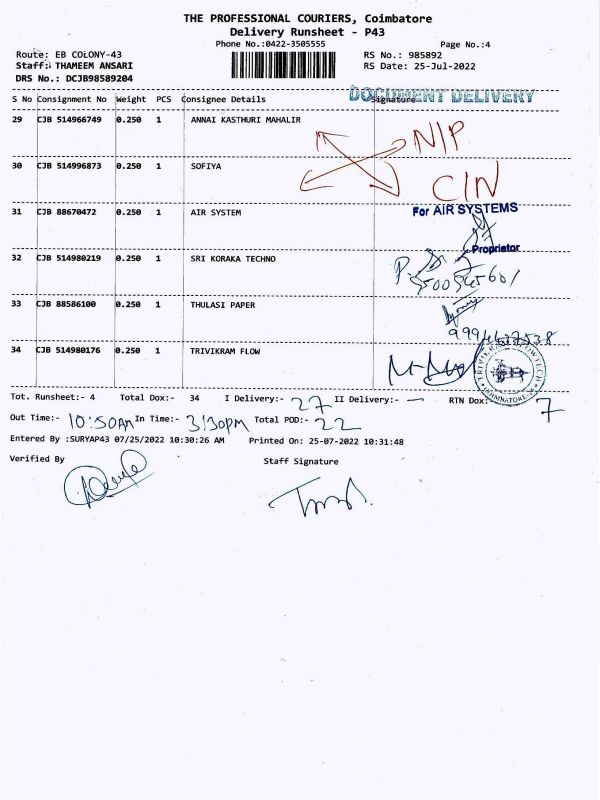 THE PROFESSIONAL COURIERS, Coimbatore
Delivery Runsheet - P43
Phone No.:0422-3505555 Page No.:4
Route: EB COLONY-43 RS No.: 985892
Staff: THAMEEM ANSARI RS Date: 25-Jul-2022
DRS No.: DCJB98589204
DOCUMENT DELIVERY
S No Consignment No Weight PCS Consignee Details Signature
29 CJB 514966749 0.250 1 ANNAI KASTHURI MAHALIR N/P
30 CJB 514996873 0.250 1 SOFIYA C/N
31 CJB 88670472 0.250 1 AIR SYSTEM For AIR SYSTEMS
Proprietor
32 CJB 514980219 0.250 1 SRI KORAKA TECHNO
33 CJB 88586100 0.250 1 THULASI PAPER
34 CJB 514980176 0.250 1 TRIVIKRAM FLOW
Tot. Runsheet:- 4 Total Dox:- 34 I Delivery:- 27 II Delivery:- — RTN Dox: 7
Out Time:- 10:50AM In Time:- 3:30PM Total POD:- 22
Entered By :SURYAP43 07/25/2022 10:30:26 AM Printed On: 25-07-2022 10:31:48
Verified By Staff Signature